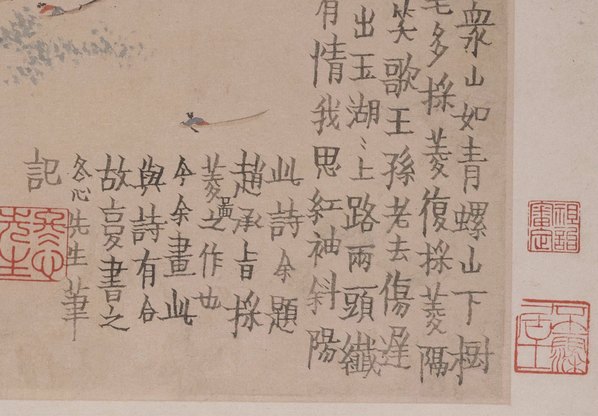 眾山如青螺山下樹
毛多採菱復採菱隔
笑歌王孫老去傷遲
出玉湖〻上路兩頭纖
有情我思紅袖斜陽
此詩余題
趙承旨採
菱之作也
今余畫此
與詩有合
故書之
冬心先生筆
記
冬心先生
祖詒審定